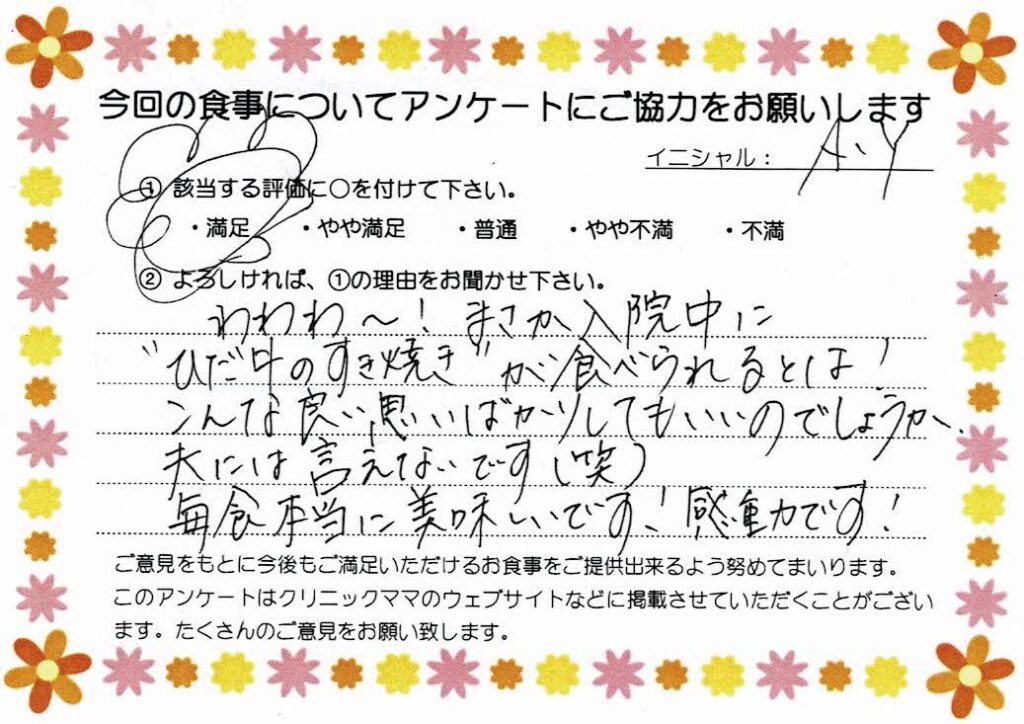 今回の食事についてアンケートにご協力をお願いします
イニシャル: A.Y
① 該当する評価に○を付けて下さい。
・満足 ・やや満足 ・普通 ・やや不満 ・不満
② よろしければ、①の理由をお聞かせ下さい。
わわわ～! まさか入院中に
"ひだ牛のすき焼き"が食べられるとは!
こんな良い思いばかりしてもいいのでしょうか、
夫には言えないです(笑)
毎食本当に美味しいです!感動です!
ご意見をもとに今後もご満足いただけるお食事をご提供出来るよう努めてまいります。
このアンケートはクリニックママのウェブサイトなどに掲載させていただくことがござい
ます。たくさんのご意見をお願い致します。